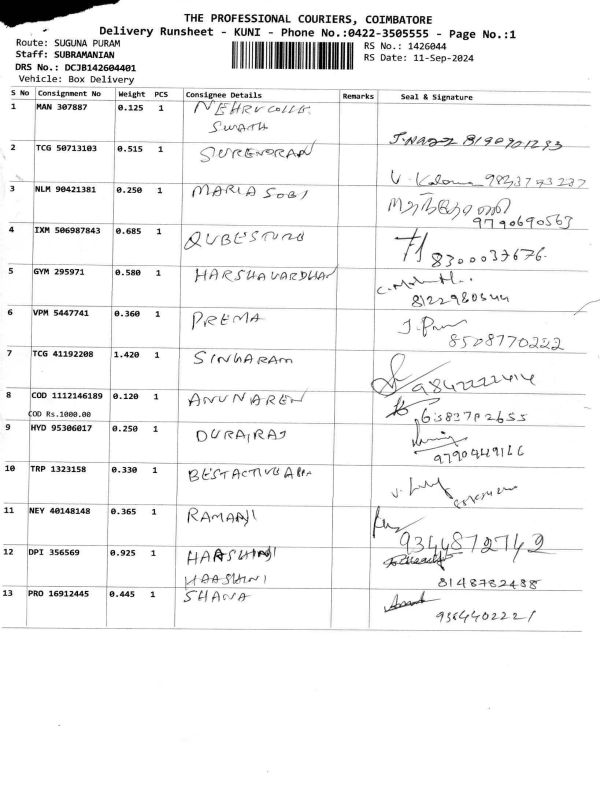 THE PROFESSIONAL COURIERS, COIMBATORE
Delivery Runsheet - KUNI - Phone No.:0422-3505555 - Page No.:1
Route: SUGUNA PURAM
RS No.: 1426044
Staff: SUBRAMANIAN
RS Date: 11-Sep-2024
DRS No.: DCJB142604401
Vehicle: Box Delivery
S No Consignment No Weight PCS Consignee Details Remarks Seal & Signature
1 MAN 307887 0.125 1 NEHRU COLLE
SWATH
2 TCG 50713103 0.515 1 SURENDRAN
3 NLM 90421381 0.250 1 MARIA SOBI
9790690563
4 IXM 506987843 0.685 1 QUBESTURB
8300037676.
5 GYM 295971 0.580 1 HARSHAVARDHAN
6 VPM 5447741 0.360 1 PREMA
8508770222
7 TCG 41192208 1.420 1 SINGARAM
8 COD 1112146189 0.120 1 ANUNAREN
COD Rs.1000.00
9 HYD 95306017 0.250 1 DURAIRAJ
10 TRP 1323158 0.330 1 BESTACTIVE
11 NEY 40148148 0.365 1 RAMAAJI
9344872742
12 DPI 356569 0.925 1 HARSHINI
HAASHINI
8148782488
13 PRO 16912445 0.445 1 SHANA
9364402221